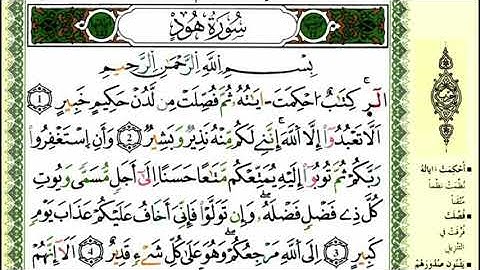 سُورَةُ هُودٍ
بِسْمِ ٱللَّهِ ٱلرَّحْمَٰنِ ٱلرَّحِيمِ
الٓرۚ كِتَٰبٌ أُحْكِمَتْ ءَايَٰتُهُۥ ثُمَّ فُصِّلَتْ مِن لَّدُنْ حَكِيمٍ خَبِيرٍ ١
أَلَّا تَعْبُدُوٓا۟ إِلَّا ٱللَّهَۚ إِنَّنِى لَكُم مِّنْهُ نَذِيرٌ وَبَشِيرٌ ٢ وَأَنِ ٱسْتَغْفِرُوا۟
رَبَّكُمْ ثُمَّ تُوبُوٓا۟ إِلَيْهِ يُمَتِّعْكُم مَّتَٰعًا حَسَنًا إِلَىٰٓ أَجَلٍ مُّسَمًّى وَيُؤْتِ
كُلَّ ذِى فَضْلٍ فَضْلَهُۥۖ وَإِن تَوَلَّوْا۟ فَإِنِّىٓ أَخَافُ عَلَيْكُمْ عَذَابَ يَوْمٍ
كَبِيرٍ ٣ إِلَى ٱللَّهِ مَرْجِعُكُمْۖ وَهُوَ عَلَىٰ كُلِّ شَىْءٍ قَدِيرٌ ٤ أَلَآ إِنَّهُمْ
أُحْكِمَتْ آيَاتُهُ
نُظِّمَتْ نَظْماً
مُتْقَناً
فُصِّلَتْ
فُرِّقَتْ في
التنزيل
يَثْنُونَ صُدُورَهُمْ